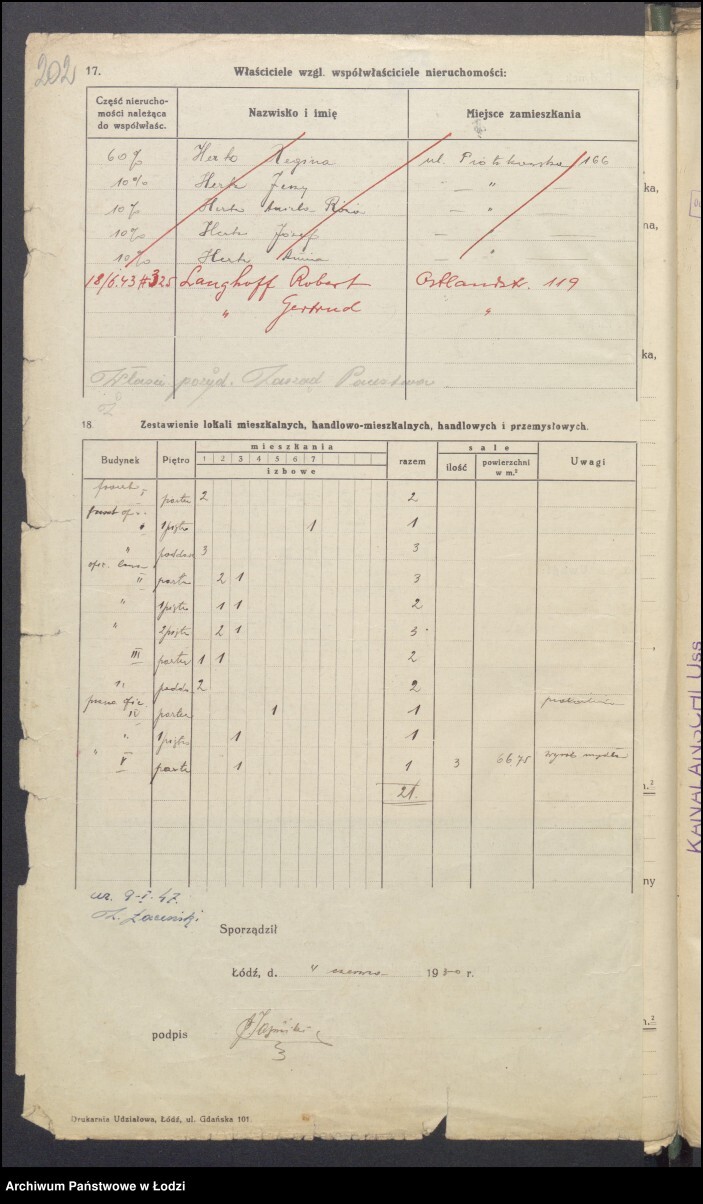 202
17. Właściciele wzgl. współwłaściciele nieruchomości:
Część nierucho-
mości należąca
do współwłaśc.
Nazwisko i imię
Miejsce zamieszkania
60% Hertz Regina ul. Piotrkowska 166
10% Hertz Jerzy — " —
10% Hertz Róża — " —
10% Hertz Józef — " —
10% Hertz Anna — " —
18/6.43 Langhoff Robert Ostlandstr. 119
" Gertrud "
Zarząd Państwowy
18. Zestawienie lokali mieszkalnych, handlowo-mieszkalnych, handlowych i przemysłowych.
Budynek Piętro mieszkania razem sale Uwagi
1 2 3 4 5 6 7
izbowe
ilość powierzchni w m.²
I parter 2 2
" 1 piętro 1 1
" poddasze 3 3
II parter 2 1 3
" 1 piętro 1 1 2
" 2 piętro 2 1 3
III parter 1 1 2
" poddasze 2 2
prawa ofic.
IV parter 1 1
" 1 piętro 1 1
" V parter 1 1 3 66,75 wyrób mydła
21.
9-I-47.
Sporządził
Łódź, d. " czerwca 1930 r.
podpis
Drukarnia Udziałowa, Łódź, ul. Gdańska 101.
ka,
na,
ka,
m.²
ny
m.²
Archiwum Państwowe w Łodzi